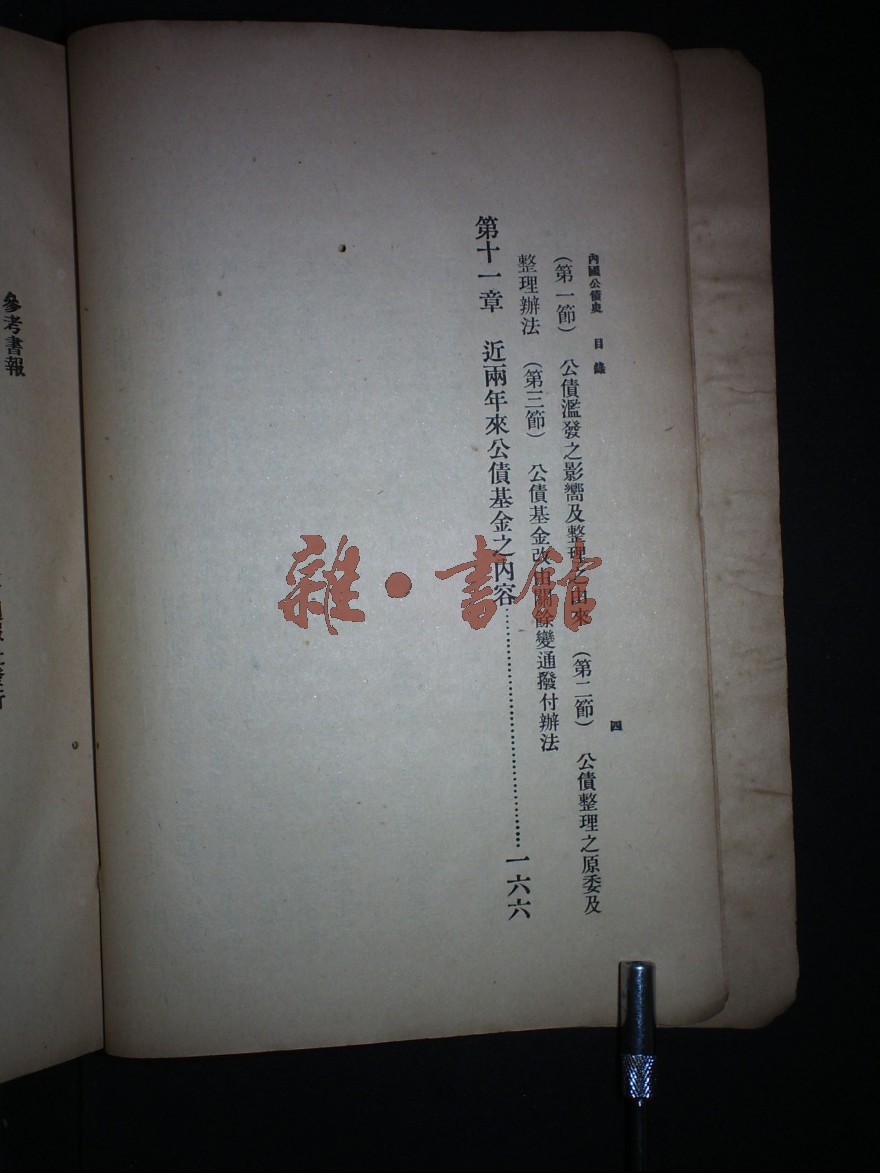 內國公債史 目錄 四
(第一節) 公債濫發之影嚮及整理之由來 (第二節) 公債整理之原委及
整理辦法 (第三節) 公債基金改由關餘變通撥付辦法
第十一章 近兩年來公債基金之內容……………………一六六
參考書報
雜·書館